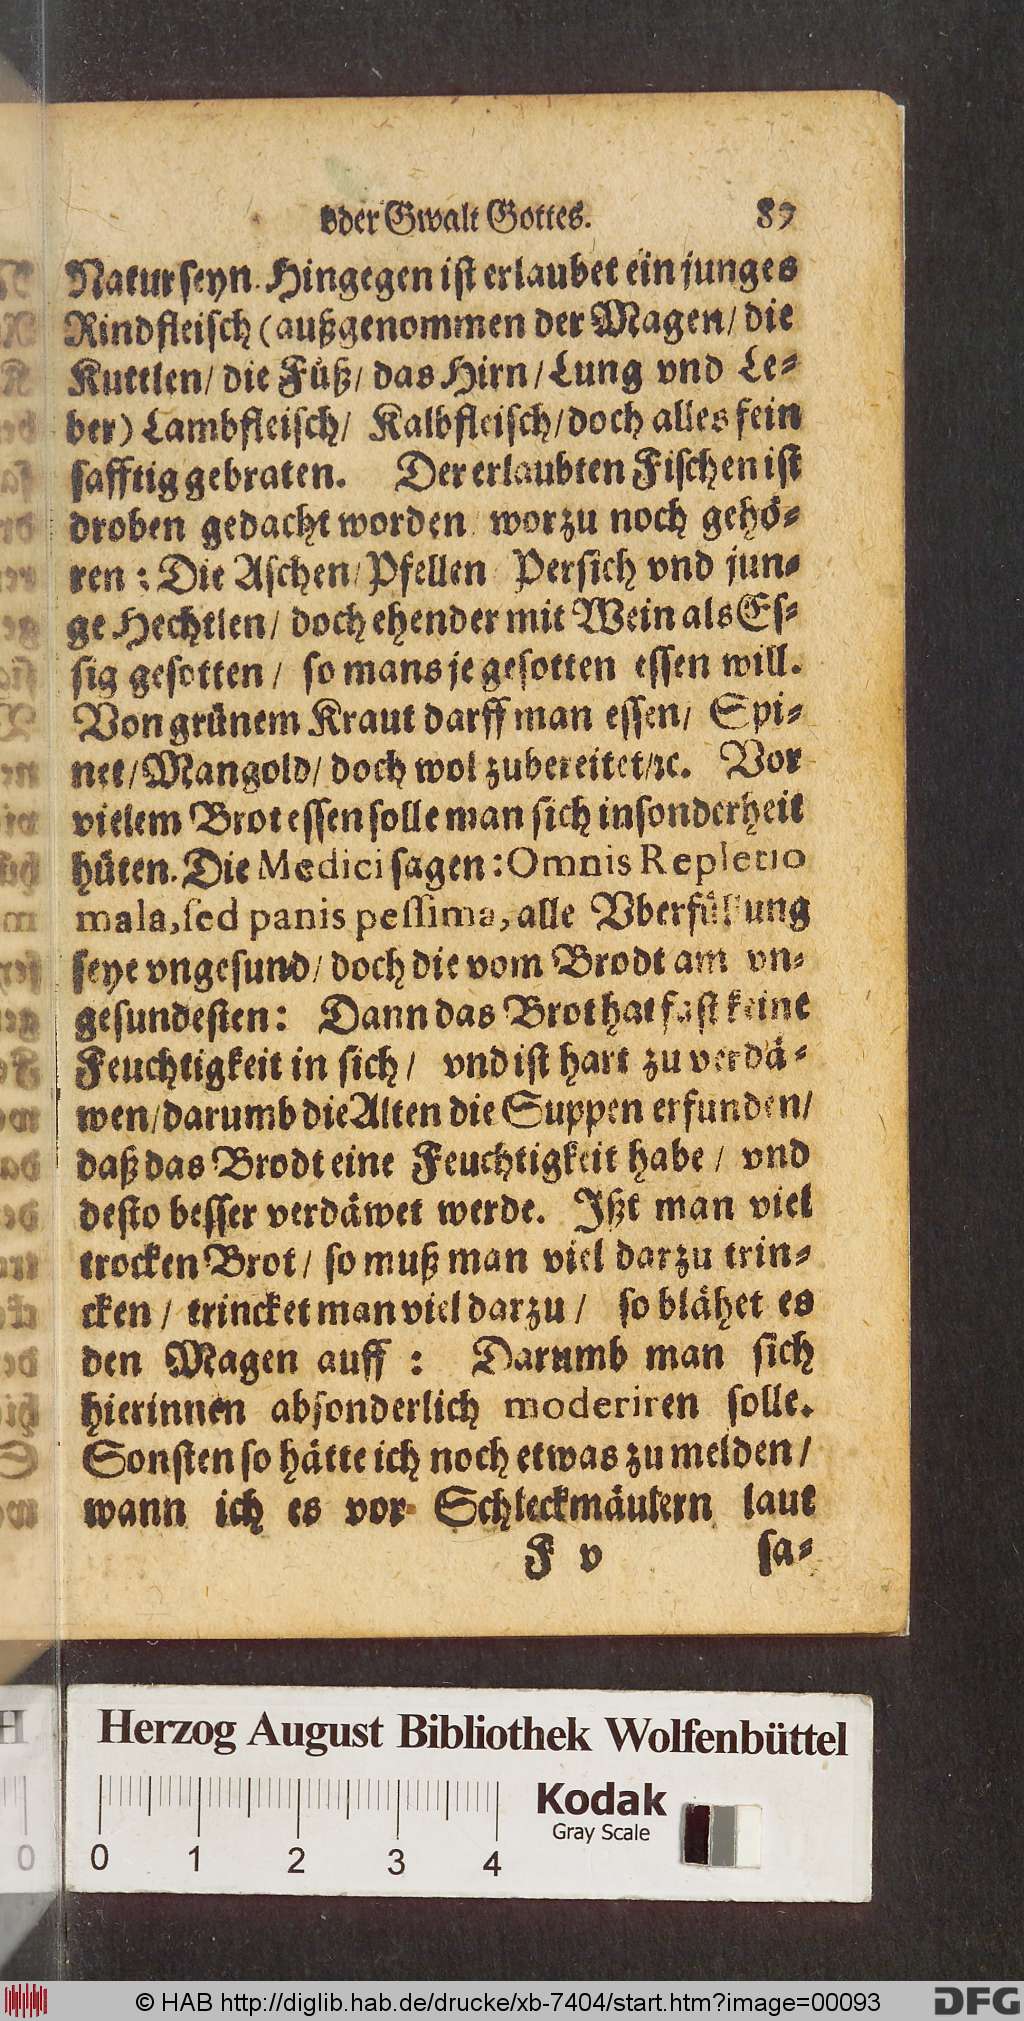 oder Gwalt Gottes. 89
Natur seyn. Hingegen ist erlaubet ein junges
Rindfleisch (außgenommen der Magen/ die
Kuttlen/ die Füß/ das Hirn/ Lung vnd Le-
ber) Lambfleisch/ Kalbfleisch/ doch alles fein
safftig gebraten. Der erlaubten Fischen ist
droben gedacht worden/ worzu noch gehö-
ren: Die Aschen/ Pfellen Persich vnd jun-
ge Hechtlen/ doch ehender mit Wein als Es-
sig gesotten/ so mans je gesotten essen will.
Von grünem Kraut darff man essen/ Spi-
net/ Mangold/ doch wol zubereitet/ꝛc. Vor
vielem Brot essen solle man sich insonderheit
hüten. Die Medici sagen: Omnis Repletio
mala, sed panis pessima, alle Vberfüllung
seye vngesund/ doch die vom Brodt am vn-
gesundesten: Dann das Brot hat fast keine
Feuchtigkeit in sich/ vnd ist hart zu verdä-
wen/ darumb die Alten die Suppen erfunden/
daß das Brodt eine Feuchtigkeit habe/ vnd
desto besser verdäwet werde. Ißt man viel
trocken Brot/ so muß man viel darzu trin-
cken/ trincket man viel darzu/ so blähet es
den Magen auff: Darumb man sich
hierinnen absonderlich moderiren solle.
Sonsten so hätte ich noch etwas zu melden/
wann ich es vor Schleckmäulern laut
F v sa-
Herzog August Bibliothek Wolfenbüttel
Kodak
Gray Scale
0 0 1 2 3 4
© HAB http://diglib.hab.de/drucke/xb-7404/start.htm?image=00093
DFG